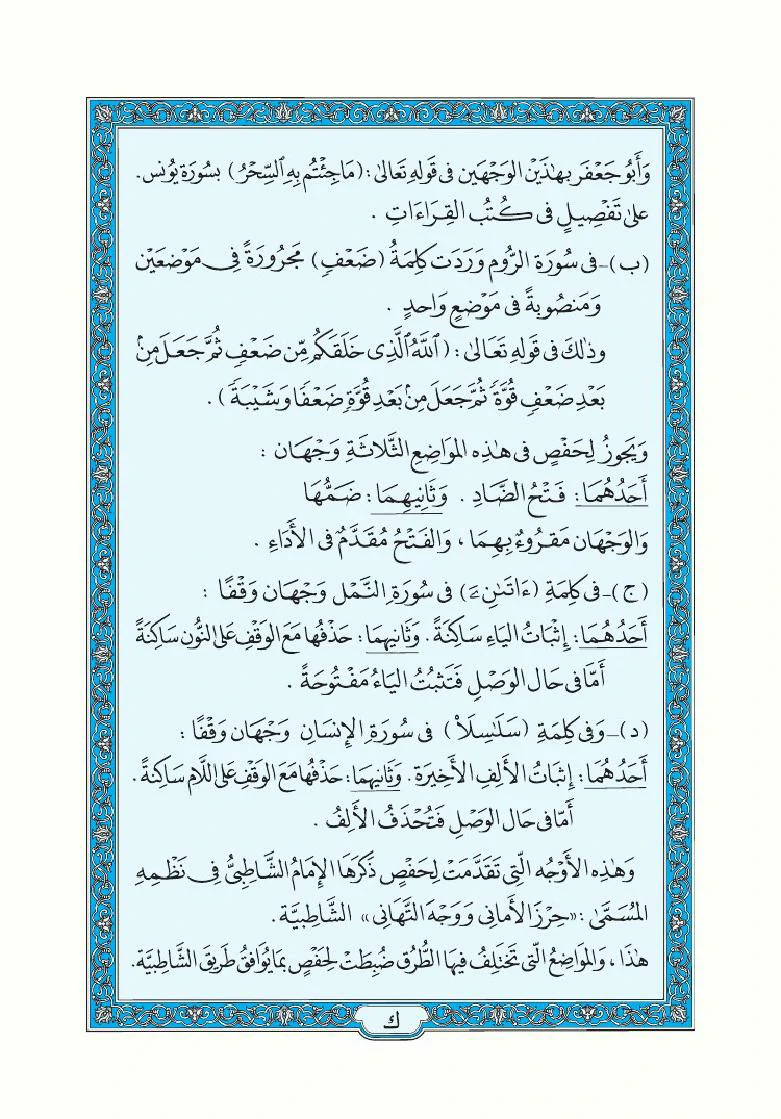 وَأَبُو جَعْفَر بهٰذَيْنِ الوَجْهَيْن فى قَولهِ تَعَالىٰ : (مَا جِئْتُم بِهِ ٱلسِّحْرُ) بسُورَةِ يُونس .
علىٰ تَفْصِيلٍ فى كُتُبِ القِرَاءَاتِ .
(ب)_ فى سُورَةِ الرُّوم وَرَدَت كلِمَةُ (ضَعْفٍ) مَجرُورَةً فِى مَوْضعَيْن
وَمَنصُوبةً فى مَوْضعٍ وَاحدٍ .
وذٰلكَ فى قَولهِ تَعَالىٰ : (ٱللَّهُ ٱلَّذِى خَلَقَكُم مِّن ضَعْفٍ ثُمَّ جَعَلَ مِنۢ
بَعْدِ ضَعْفٍ قُوَّةً ثُمَّ جَعَلَ مِنۢ بَعْدِ قُوَّةٍ ضَعْفًا وَشَيْبَةً) .
وَيَجوزُ لِحَفْصٍ فى هٰذِه المَواضِعِ الثَّلَاثَةِ وَجْهَان :
أَحَدُهُمَا : فَتْحُ الضَّادِ . وَثَانِيهِمَا : ضَمُّهَا
وَالوَجْهَان مَقرُوءٌ بِهِمَا ، وَالفَتْحُ مُقَدَّمٌ فى الأَدَاءِ .
(ج)_ فى كلِمَةِ (ءَاتَىٰنِۦَ) فى سُورَةِ النَّمْل وَجْهَان وَقْفًا :
أَحَدُهُمَا : إِثبَاتُ اليَاءِ سَاكِنَةً . وَثَانِيهِمَا : حَذْفُهَا مَعَ الوَقْفِ عَلىٰ النُّون سَاكِنَةً
أَمَّا فى حَال الوَصْلِ فَتَثبُتُ اليَاءُ مَفْتُوحَةً .
(د)_ وَفى كلِمَةِ (سَلَـٰسِلَا۠) فى سُورَةِ الإِنسَانِ وَجْهَان وَقفًا :
أَحَدُهُمَا : إِثبَاتُ الأَلِفِ الأَخِيرَة . وَثَانِيهِمَا : حَذْفُهَا مَعَ الوَقْفِ عَلىٰ اللَّام سَاكِنَةً .
أَمَّا فى حَال الوَصْلِ فَتُحْذَفُ الأَلِفُ .
وَهٰذِه الأَوْجُه الَّتِى تَقَدَّمَتْ لِحَفْصٍ ذَكَرَهَا الإِمَامُ الشَّاطِبىُّ فِى نَظْمِهِ
المُسَمَّىٰ : «حِرْزُ الأَمَانِى وَوَجْهَ التَّهَانِى» الشَّاطِبيَّة .
هٰذَا ، وَالمَوَاضِعُ الَّتى تَختَلِفُ فيهَا الطُّرُق ضُبِطَتْ لِحَفْصٍ بمَا يُوَافقُ طَرِيقَ الشَّاطِبيَّة .
ك